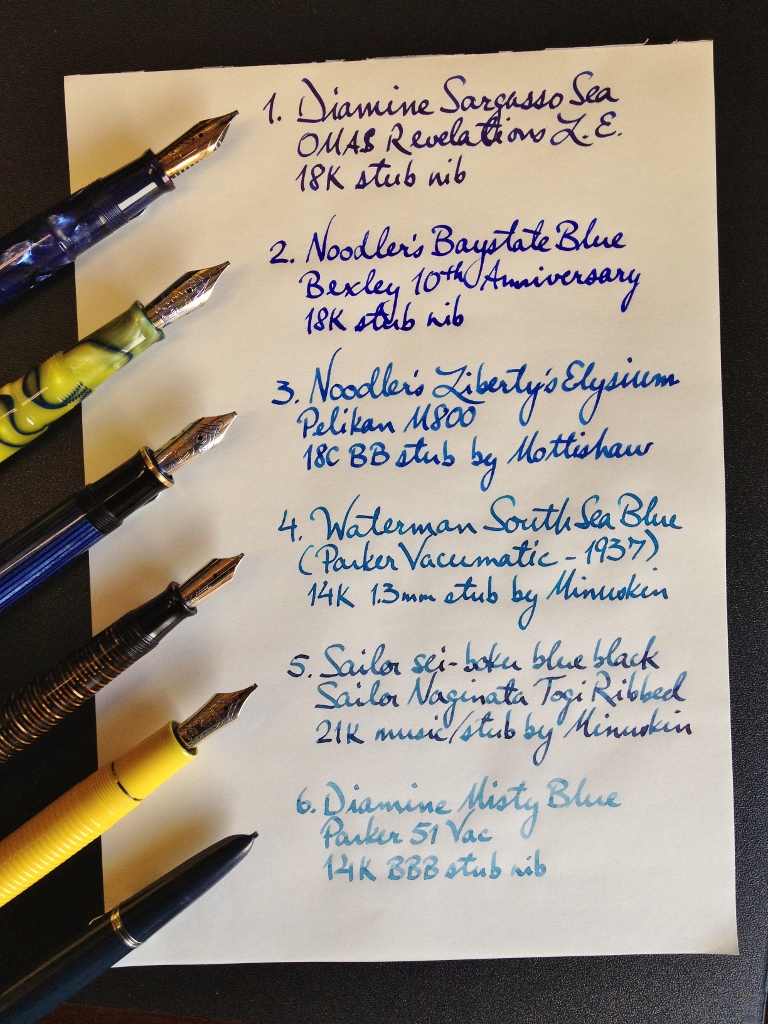 1. Diamine Sargasso Sea
OMAS Revelations L.E.
18K stub nib
2. Noodler's Baystate Blue
Bexley 10th Anniversary
18K stub nib
3. Noodler's Liberty's Elysium
Pelikan M800
18C BB stub by Mottishaw
4. Waterman South Sea Blue
(Parker Vacumatic - 1937)
14K 1.3mm stub by Minuskin
5. Sailor sei-boku blue black
Sailor Naginata Togi Ribbed
21K music/stub by Minuskin
6. Diamine Misty Blue
Parker 51 Vac
14K BBB stub nib